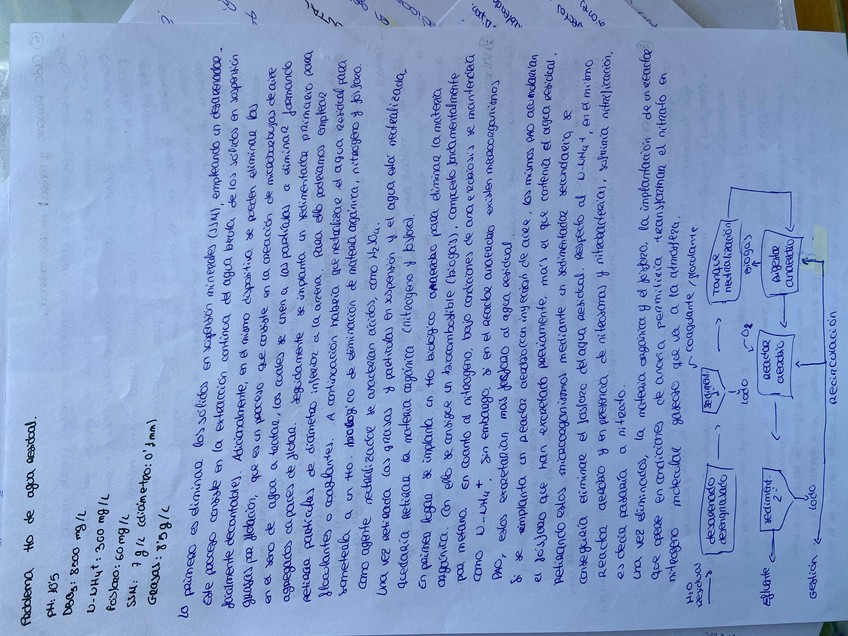 Problema tto de agua residual.
PH: 10'5
DBO5: 8500 mg/L
N-NH4+: 350 mg/L
Fósforo: 60 mg/L
SSM: 7 g/L (diámetro: 0'1 mm)
Grasas: 8'5 g/L
Lo primero es eliminar los sólidos en suspensión minerales (SSM), empleando un desarenador.
Este proceso consiste en la extracción continua del agua bruta de los sólidos en suspensión
fácilmente decantables. Adicionalmente, en el mismo dispositivo se pueden eliminar las
grasas por flotación, que es un proceso que consiste en la creación de microburbujas de aire
en el seno de agua a tratar, las cuales se unen a las partículas a eliminar formando
agregados capaces de flotar. Seguidamente se implanta un sedimentador primario para
retirar partículas de diámetro inferior a la arena. Para ello podríamos emplear
floculantes o coagulantes. A continuación habría que neutralizar el agua residual para
someterla a un tto. biológico de eliminación de materia orgánica, nitrógeno y fósforo.
Como agente neutralizador se añadirían ácidos, como H2SO4.
Una vez retirada las grasas y partículas en suspensión y el agua está neutralizada,
quedaría retirar la materia orgánica (nitrógeno y fósforo).
En primer lugar se implanta un tto biológico anaerobio para eliminar la materia
orgánica. Con ello se consigue un biocombustible (biogás), compuesto fundamentalmente
por metano. En cuanto al nitrógeno, bajo condiciones de anaerobiosis se mantendría
como N-NH4+. Sin embargo, si en el reactor anaerobio existen microorganismos
PAO, estos excretarían más fósforo al agua residual.
Si se implanta un reactor aerobio con inyección de aire, los mismos PAO acumularían
el fósforo que han excretado previamente, más el que contenía el agua residual.
Retirando estos microorganismos mediante un sedimentador secundario, se
conseguiría eliminar el fósforo del agua residual. Respecto al N-NH4+, en el mismo
reactor aerobio y en presencia de nitrosomas y nitrobacterias, sufriría nitrificación,
es decir pasaría a nitrato.
Una vez eliminados, la materia orgánica y el fósforo, la implantación de un reactor
que opere en condiciones de anoxia permitiría transformar el nitrato en
nitrógeno molecular gaseoso que va a la atmósfera.
H2O
residual
desarenado
desengrasado
sediment. 1º
coagulante / floculante
lodo
tanque
neutralización
biogás
digestor
anaerobio
Reactor
aerobio
O2
sediment.
2º
lodo
efluente
gestión
Recirculación